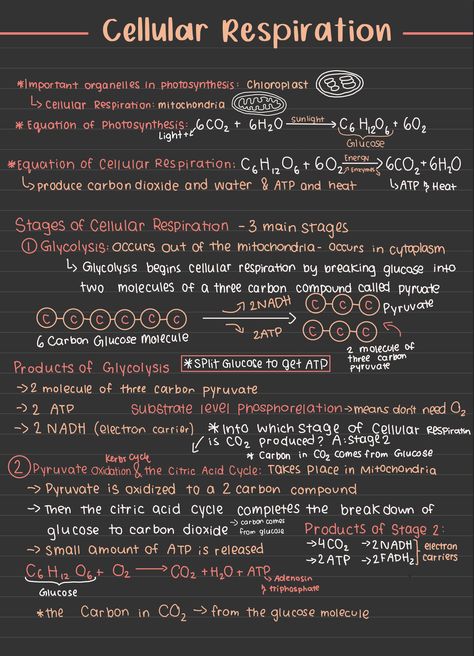 Cellular Respiration
*Important organelles in photosynthesis: Chloroplast
↳ Cellular Respiration: mitochondria
*Equation of Photosynthesis: 6CO₂ + 6H₂O → C₆H₁₂O₆ + 6O₂
Sunlight
Light+
Glucose
*Equation of Cellular Respiration: C₆H₁₂O₆ + 6O₂ → 6CO₂+6H₂O
Energy
Enzymes
↳ produce carbon dioxide and water & ATP and heat
↳ATP & Heat
Stages of Cellular Respiration - 3 main stages
① Glycolysis: occurs out of the mitochondria- occurs in cytoplasm
↳ Glycolysis begins cellular respiration by breaking glucose into
two molecules of a three carbon compound called pyruvate
C C C C C C
6 Carbon Glucose Molecule
→ 2NADH
→ 2ATP
C C C Pyruvate
C C C
2 molecule of
three carbon
pyruvate
Products of Glycolysis
*Split Glucose to get ATP
→ 2 molecule of three carbon pyruvate
→ 2 ATP
Substrate level phosphorelation → means don't need O₂
→ 2 NADH (electron carrier)
*Into which stage of Cellular Respiration
is CO₂ produced? A: Stage 2
* Carbon in CO₂ comes from Glucose
Kerbs Cycle
② Pyruvate Oxidation & the Citric Acid Cycle: Takes place in Mitochondria
→ Pyruvate is oxidized to a 2 carbon compound
→ Then the citric acid cycle completes the breakdown of
glucose to carbon dioxide → carbon comes
from glucose
→ Small amount of ATP is released
Products of Stage 2:
→4CO₂ →2NADH
→2ATP →2FADH₂
electron
carriers
C₆H₁₂O₆ + O₂ → CO₂ + H₂O + ATP
Glucose
Adenosin
triphosphate
*the Carbon in CO₂ → from the glucose molecule